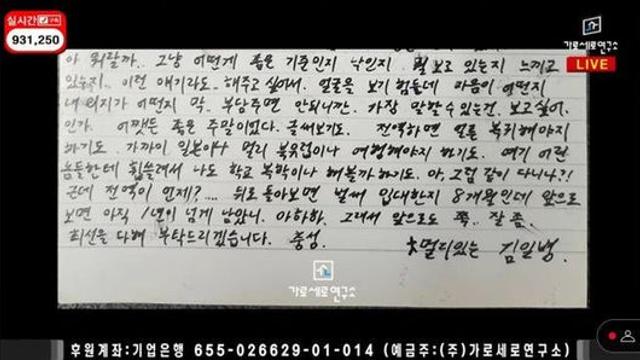 실시간
931,250
가로세로연구소
LIVE
아 뭐랄까.. 그냥 어떤게 좋은 기준인지 낙인지. 뭘 보고 있는지 느끼고
있는지.. 이런 얘기라도.. 해주고 싶어서. 얼굴을 보기 힘듦데 마음이 어떤지
내 의지가 어떤지 막. 부담주면 안되니깐. 가장 말할 수 있는건. 보고싶어.
인가. 어쨋든 좋은 주말이었다. 글써보기도. 전역하면 얼른 복귀해야지
하기도. 가까이 일본이나 멀리 북유럽이나 여행해야지 하기도. 여기 어린
놈들한테 휩쓸려서 나도 학교 복학이나 해볼까하기도. 아, 그럼 같이 다니나?!
근데 전역이 언제?.... 뒤로 돌아보면 벌써 입대한지 8개월인데 앞으로
보면 아직 1년이 넘게 남았니. 아하하. 그래서 앞으로도 쭉.. 잘 좀..
최선을 다해 부탁드리겠습니다. 충성.
멀리있는 김일병.
가로세로연구소
후원계좌:기업은행 655-026629-01-014 (예금주:(주)가로세로연구소)